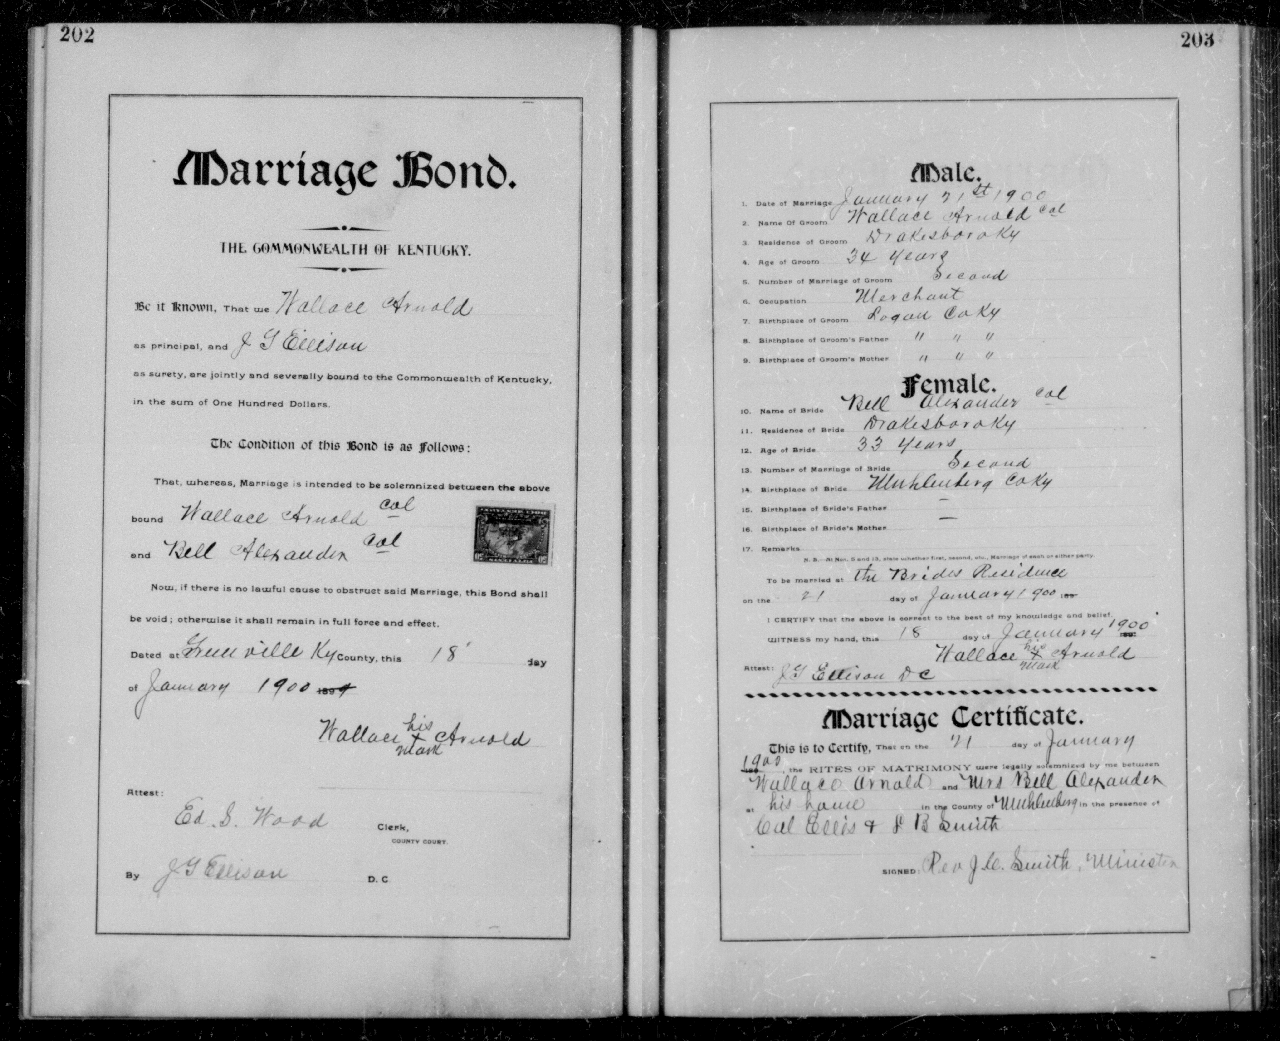 202
Marriage Bond.
THE COMMONWEALTH OF KENTUCKY.
Be it Known, That we Wallace Arnold
as principal, and J G Ellison
as surety, are jointly and severally bound to the Commonwealth of Kentucky,
in the sum of One Hundred Dollars.
The Condition of this Bond is as Follows:
That, whereas, Marriage is intended to be solemnized between the above
bound Wallace Arnold Col
and Bell Alexander Col
Now, if there is no lawful cause to obstruct said Marriage, this Bond shall
be void; otherwise it shall remain in full force and effect.
Dated at Greenville Ky County, this 18 day
of January 1900 1899
Wallace his x mark Arnold
Attest:
Ed. S. Wood Clerk,
COUNTY COURT.
By J G Ellison D. C.
203
Male.
1. Date of Marriage January 21st 1900
2. Name Of Groom Wallace Arnold Col
3. Residence of Groom Drakesboro Ky
4. Age of Groom 34 years
5. Number of Marriage of Groom Second
6. Occupation Merchant
7. Birthplace of Groom Logan Co Ky
8. Birthplace of Groom's Father " " "
9. Birthplace of Groom's Mother " " "
Female.
10. Name of Bride Bell Alexander Col
11. Residence of Bride Drakesboro Ky
12. Age of Bride 33 years
13. Number of Marriage of Bride Second
14. Birthplace of Bride Muhlenberg Co Ky
15. Birthplace of Bride's Father —
16. Birthplace of Bride's Mother —
17. Remarks
N. B.—At Nos. 5 and 13, state whether first, second, etc., Marriage of each or either party.
To be married at the Brides Residence
on the 21 day of January 1900 189
I CERTIFY that the above is correct to the best of my knowledge and belief.
WITNESS my hand, this 18 day of January 1900
Wallace his x mark Arnold
Attest: J G Ellison D C
Marriage Certificate.
This is to Certify, That on the 21 day of January
1900, the RITES OF MATRIMONY were legally solemnized by me between
Wallace Arnold and Mrs Bell Alexander
at his home in the County of Muhlenberg in the presence of
Cal Ellis & J B Smith
SIGNED: Rev J. C. Smith, Minister